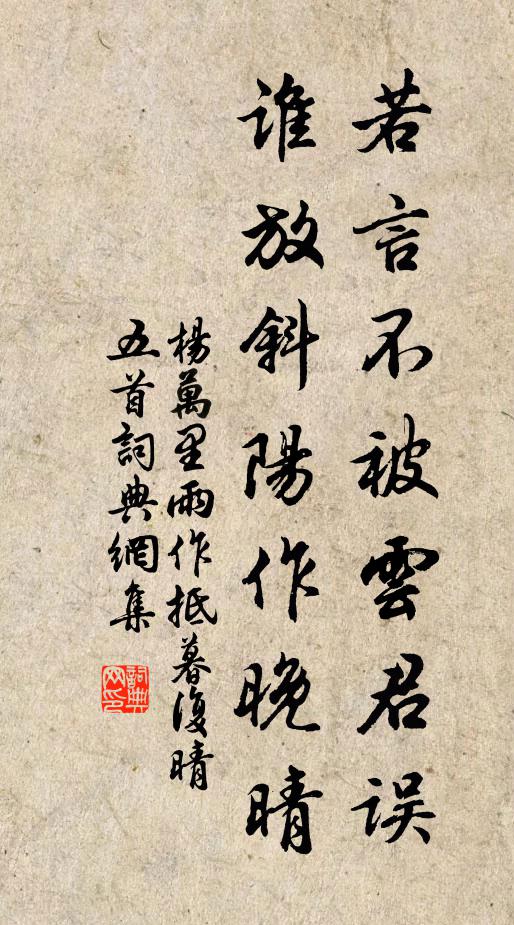 若言不被雲君误
谁放斜陽作晚晴
楊萬里雨作抵暮復晴
五首詞典網集
詞典
网印